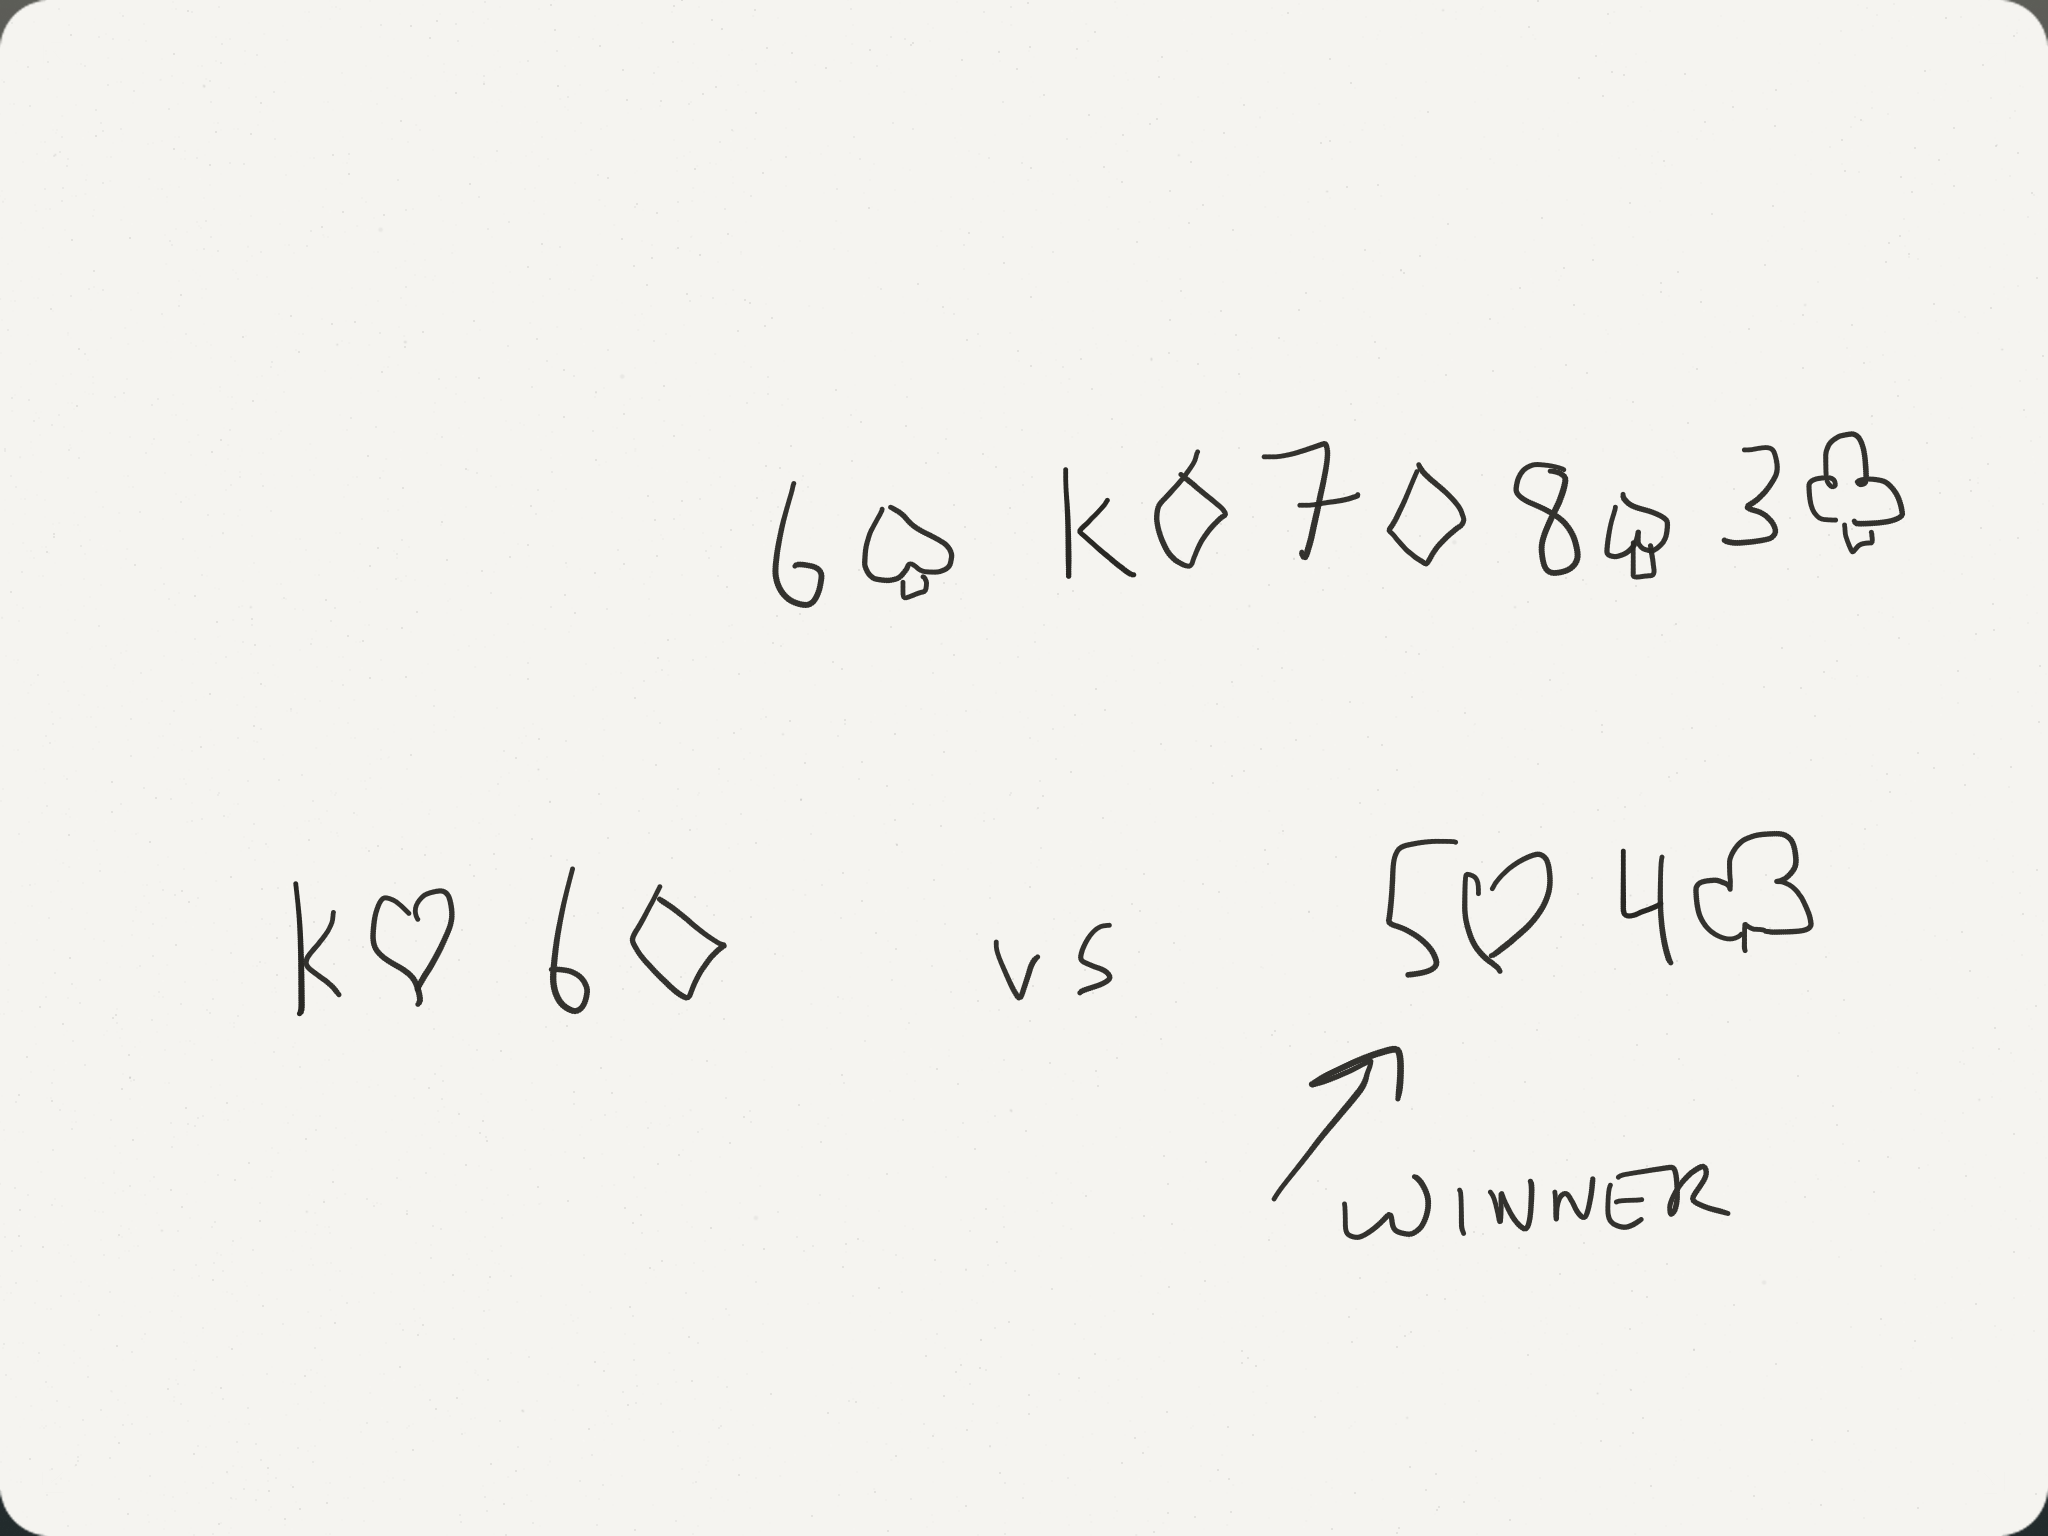 6♤ K♢ 7♢ 8♤ 3♧
K♡ 6♢ vs 5♡ 4♧
WINNER